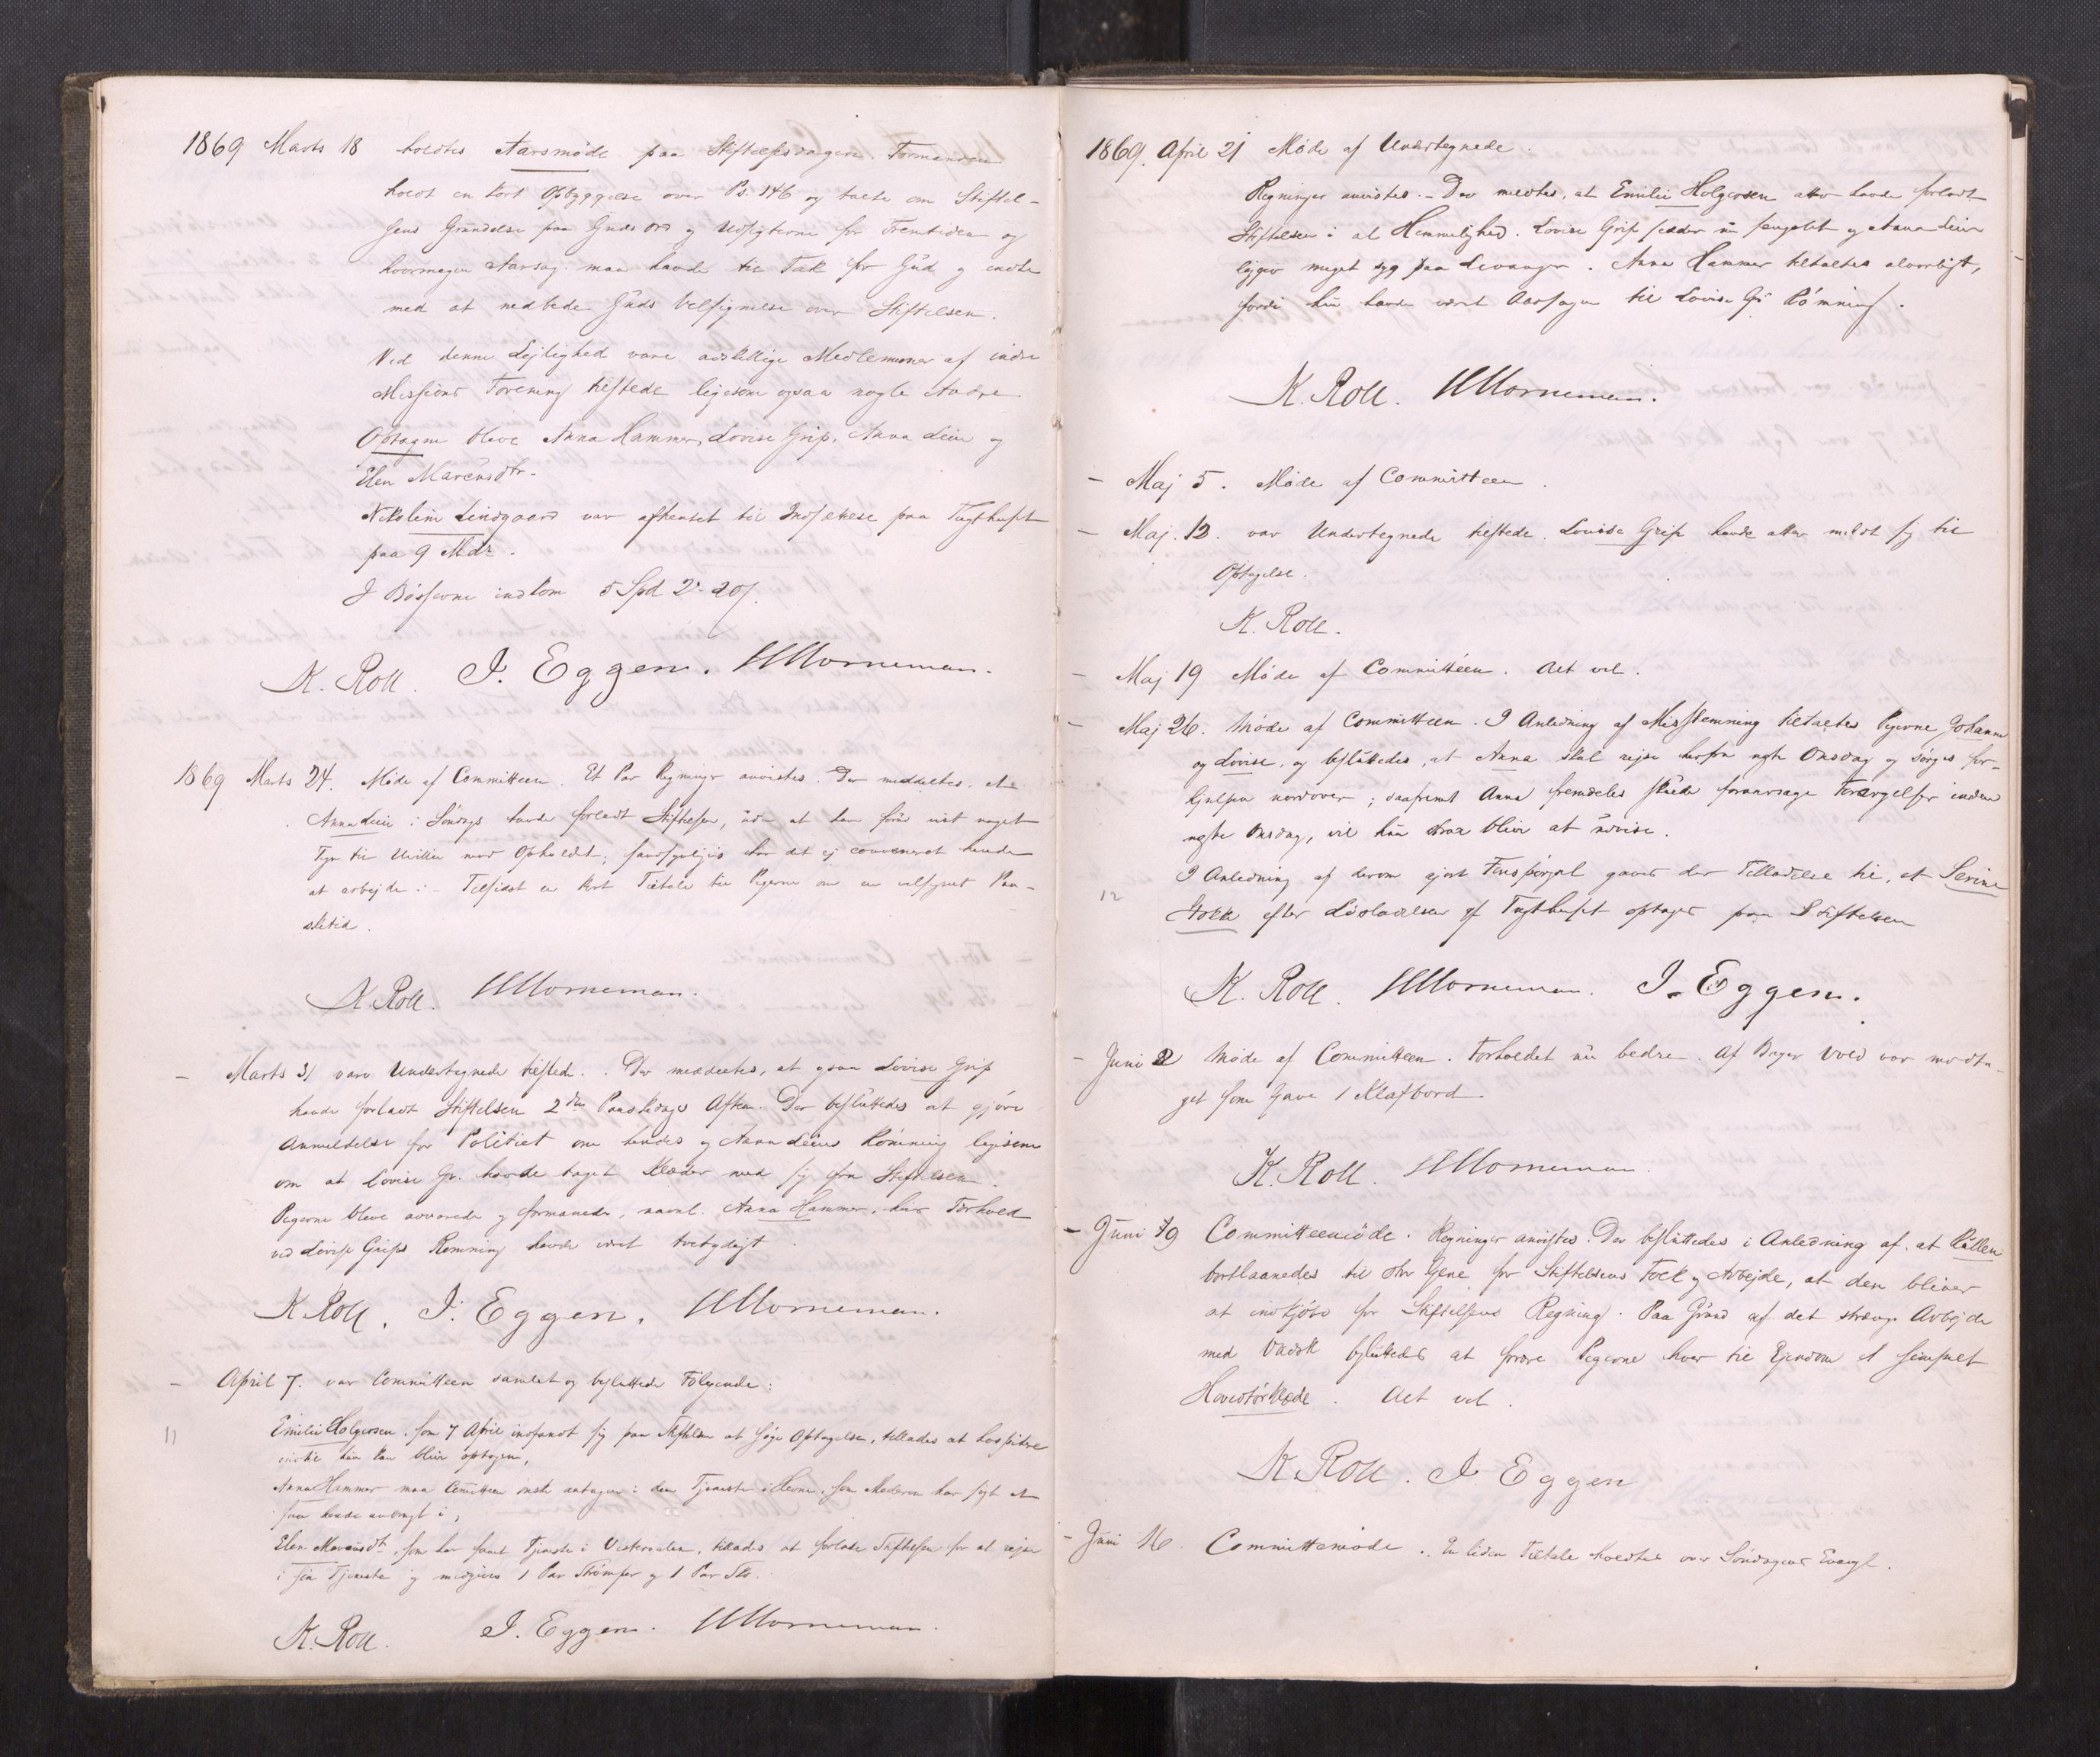 1869 Marts 18 holdtes Aarsmöde paa Stiftelsesdagen. Formanden
holdt en kort Opbyggelse over Ps. 146 og talte om Stiftel-
sens Grundelse paa Guds Ord og Udsigterne for Fremtiden og
hvormegen Aarsag man havde til Tak for Gud og endte
med at nedbede Guds Velsignelse over Stiftelsen.
Ved denne Lejlighed vare adskillige Medlemmer af indre
Missions Forening tilstede ligesom ogsaa nogle Andre
Optagne bleve Anna Hammer, Lovise Grip, Anna Lein og
Elen Marensdtr.
Nikoline Lindgaard var afhentet til Indsættelse paa Tugthuset
paa 9 Mdr.
I Bösserne indkom 5 Spd 2 - 20 s.
K. Roll. I. Eggen. HMorneman.
1869 Marts 24. Möde af Committeen. Et Par Regninger anvistes. Der meddeltes, at
Anna Lein i Söndags havde forladt Stiftelsen, uden at have forud vist noget
Tegn til Uvillie mod Opholdet; sandsynligvis har det ej conveneret hende
at arbejde. - Tilsidst en kort Tiltale til Pigerne om en velsignet Paa-
sketid.
K. Roll. HMorneman.
- Marts 31 vare Undertegnede tilstede. Der meddeltes, at ogsaa Lovise Grip
havde forladt Stiftelsen 2den Paaskedags Aften. Der besluttedes at gjöre
Anmeldelse for Politiet om hendes og Anna Leins Römning ligesom
om at Lovise Gr. havde taget Klæder med sig fra Stiftelsen.
Pigerne bleve advarede og formanede, navnl. Anna Hammer, hvis Forhold
ved Lovise Grips Rømning havde været tvetydigt
K Roll. I. Eggen. HMorneman.
- April 7. var Committeen samlet og besluttede Fölgende:
11 Emilie Holgersen, som 7 April indfandt sig paa Stiftelsen at söge Optagelse, tillades at hospitere
indtil hun kan blive optagen,
Anna Hammer maa Comitteen önske antagen i den Tjeneste i Hevne, som Moderen har sögt at
faa hende anbragt i,
Elen Marensdt., som har faaet Tjeneste i Vesteraalen, tillades at forlade Stiftelsen for at rejse
i sin Tjeneste og medgives 1 Par Strömper og 1 Par Sko.
K. Roll. I. Eggen. HMorneman.
1869. April 21 Möde af Undertegnede.
Regninger anvistes. - Der meldtes, at Emilie Holgersen atter havde forladt
Stiftelsen i al Hemmelighed. Lovise Grip sidder nu fængslet og Anna Lein
ligger meget syg paa Levanger. Anna Hammer tiltaltes alvorligt,
fordi hun havde været Aarsagen til Lovise G's Römning.
K. Roll. HMorneman.
- Maj 5. Möde af Committeen.
- Maj. 12. var Undertegnede tilstede. Lovise Grip havde atter meldt sig til
Optagelse.
K. Roll.
- Maj 19 Möde af Committéen. Alt vel.
- Maj 26. Möde af Committeen. I Anledning af Misstemning tiltaltes Pigerne Johanne
og Lovise, og besluttedes, at Anna skal rejse herfra nste Onsdag og sörges for-
hjulpen nordover; saafremt Anna fremdeles skulde foraarsage Forargelser inden
næste Onsdag, vil hun strax blive at udvise.
12 I Anledning af derom gjort Forespörgsel gaves der Tilladelse til, at Serine
Stokk efter Lösladelsen af Tugthuset optages paa Stiftelsen
K. Roll. HMorneman. I. Eggen.
- Juni 2 Möde af Committeen. Forholdet nu bedre. Af Bager Vold var modta-
get som Gave 1 Klafbord.
K. Roll. HMorneman.
- Juni 9 Committeemöde. Regninger anvistes. Der besluttedes i Anledning af, at Rullen
bortlaanedes til stor Gene for Stiftelsens Folk og Arbejde, at den bliver
at indkjöbe for Stiftelsens Regning. Paa Grund af det strænge Arbejde
med Vadsk besluttedes at forære Pigerne hver til Ejendom et simpelt
Hovedtörklæde. Alt vel.
K. Roll. I. Eggen
- Juni 16. Committemöde. En liden Tiltale holdtes over Söndagens Evangl.